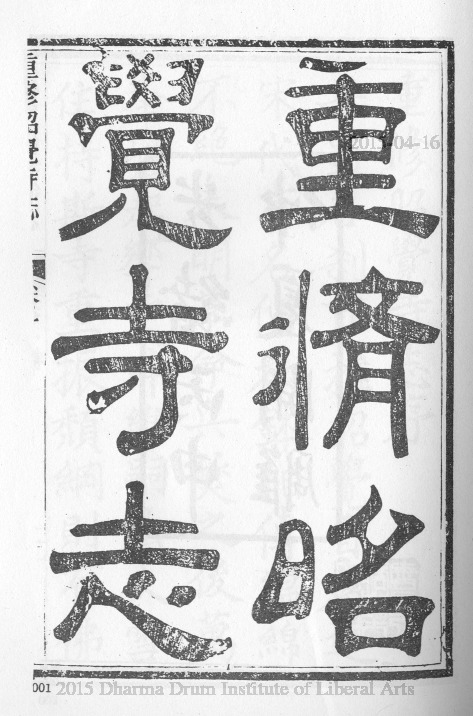 重脩昭
覺寺志
重修昭覺寺志
2015-04-16
001 2015 Dharma Drum Institute of Liberal Arts